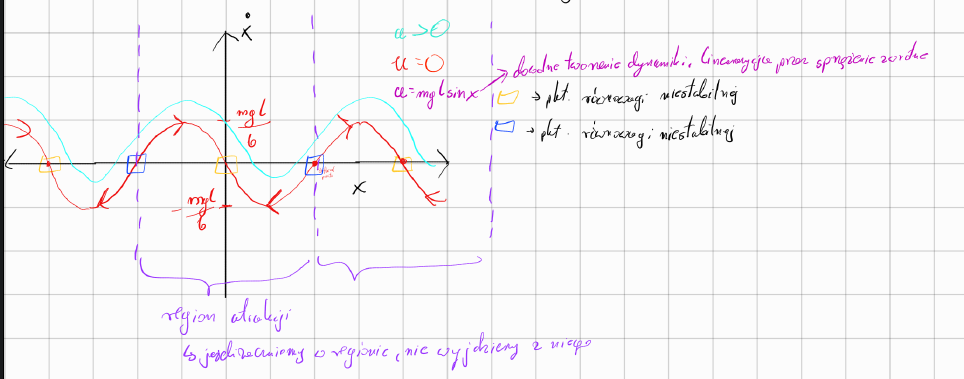 ẋ
u>0
u=0
u=mglsinx → dokładne tworzenie dynamiki, linearyzacja przez sprzężenie zwrotne
→ pkt. równowagi niestabilnej
→ pkt. równowagi niestabilnej
mgl/b
x
-mgl/b
region atrakcji
↳ jeśli zaczniemy w regionie, nie wyjdziemy z niego